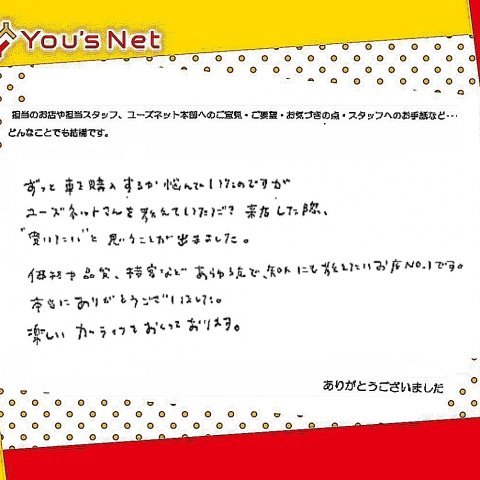 You's Net
担当のお店や担当スタッフ、ユーズネット本部へのご意見・ご要望・お気づきの点・スタッフへのお手紙など…
どんなことでも結構です。
ずっと車を購入するか悩んでいたのですが
ユーズネットさんを教えていただき来店した際、
"買いたい"と思うことが出来ました。
価格や品質、接客など あらゆる点で、知人にも教えたいお店NO.1です。
本当にありがとうございました。
楽しいカーライフをおくっております。
ありがとうございました